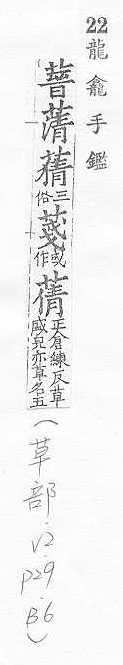 22龍龕手鑑
蒨三俗䔿或作蒨正倉練反草盛皃亦草名五
(草部.V2.P29.B6)